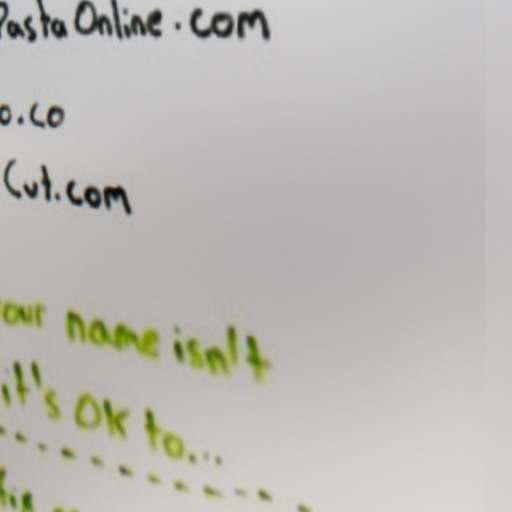 PastaOnline.com
o.co
Cut.com
our name isn't
it's OK to...